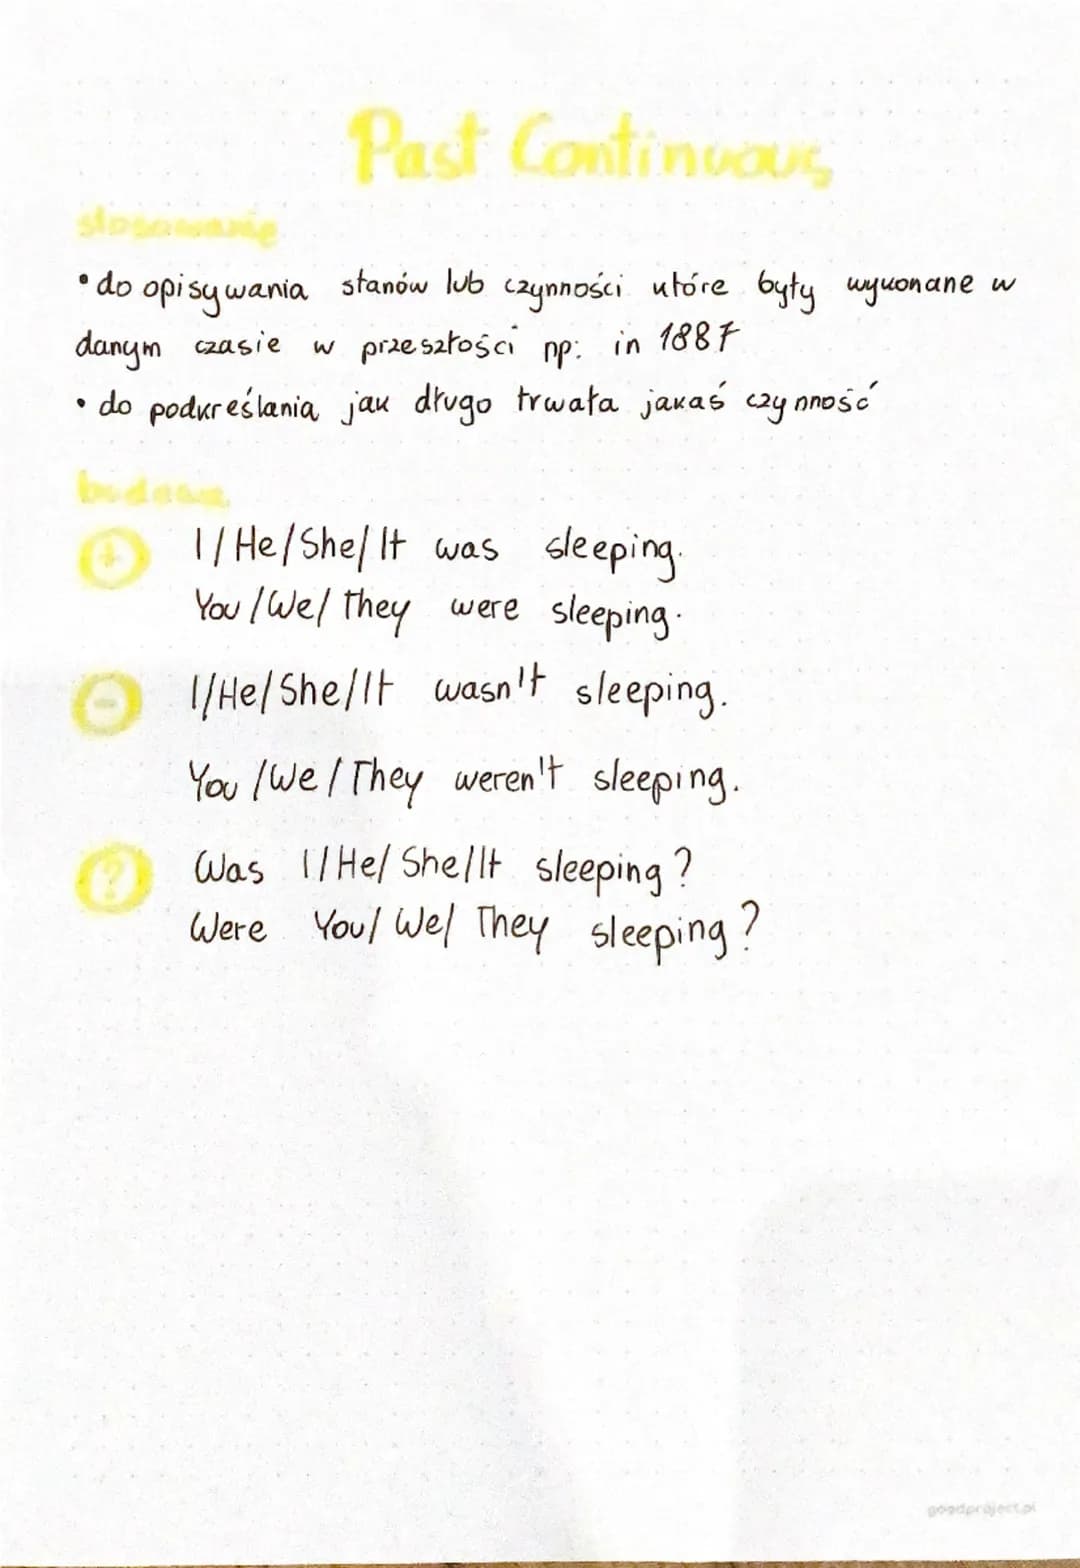 Past Continuous
stosowanie
• do opisywania stanów lub czynności które były wykonane w
danym czasie w przeszłości np: in 1887
• do podkreślania jak długo trwała jakaś czynność
budowa
+ I/He/She/It was sleeping.
You/We/they were sleeping.
- I/He/She/It wasn't sleeping.
You/We/They weren't sleeping.
? Was I/He/She/It sleeping?
Were You/We/They sleeping?
goodproject.pl